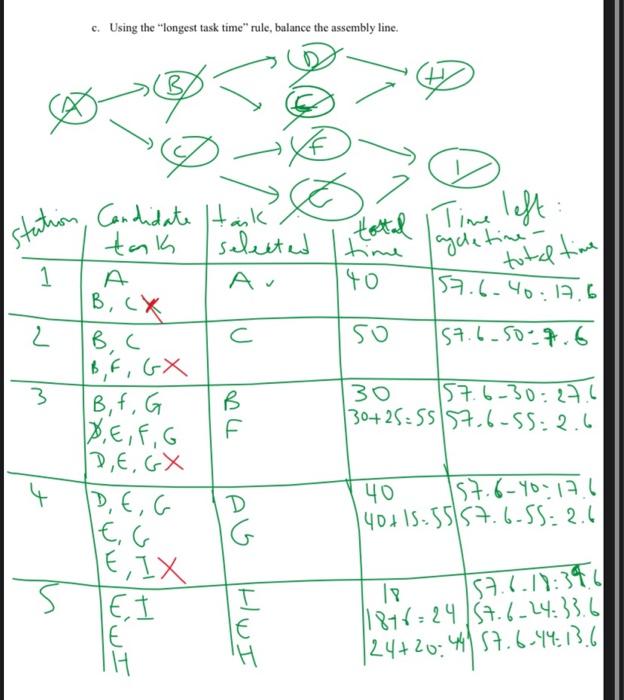 c. Using the “longest task time” rule, balance the assembly line.
D
B
H
A
E
F
C
I
G
station
Candidate task
task selected
total time
Time left: cycle time - total time
1
A
A
40
57.6-40:17.6
B, C X
2
B, C
C
50
57.6-50=7.6
B, F, G X
3
B, f, G
B
30
57.6-30:27.6
D, E, F, G
F
30+25=55
57.6-55=2.6
D, E, G X
4
D, E, G
D
40
57.6-40=17.6
E, G
G
40+15=55
57.6-55=2.6
E, I X
5
E, I
I
18
57.6-18:39.6
E
E
18+6=24
57.6-24:33.6
H
H
24+20:44
57.6-44:13.6